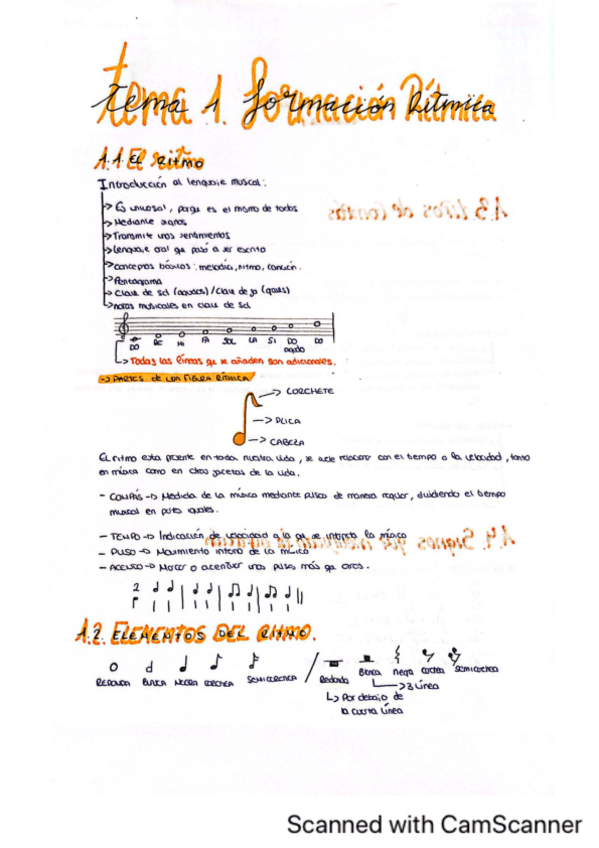 tema 1. Formación Rítmica
1.1 El ritmo
Introducción al lenguaje musical:
-> Es universal, porque es el mismo de todos
-> Mediante signos
-> Transmite unos sentimientos
-> Lenguaje oral que pasó a ser escrito
-> conceptos básicos: melodía, ritmo, canción.
-> Pentagrama
-> Clave de sol (agudos) / Clave de fa (graves)
-> notas musicales en clave de sol
DO RE MI FA SOL LA SI DO DO
agudo
-> Todas las líneas que se añaden son adicionales.
-> PARTES de una FIGURA RÍTMICA
-> CORCHETE
-> PLICA
-> CABEZA
El ritmo esta presente en toda nuestra vida, se suele relacionar con el tiempo o la velocidad, tanto
en música como en otras facetas de la vida.
- COMPÁS -> Medida de la música mediante pulso de manera regular, dividiendo el tiempo
musical en partes iguales.
- TEMPO -> Indicación de velocidad a la que se interpreta la música
- PULSO -> Movimiento interno de la música
- ACENTO -> Marcar o acentuar unos pulsos más que otros.
2
1.2. ELEMENTOS DEL RITMO.
REDONDA BLANCA NEGRA CORCHEA SEMICORCHEA / Redonda Blanca negra corchea semicorchea
-> 3 línea
-> Por debajo de
la cuarta línea
1.3 tipos de
1.4. Signos que
Scanned with CamScanner